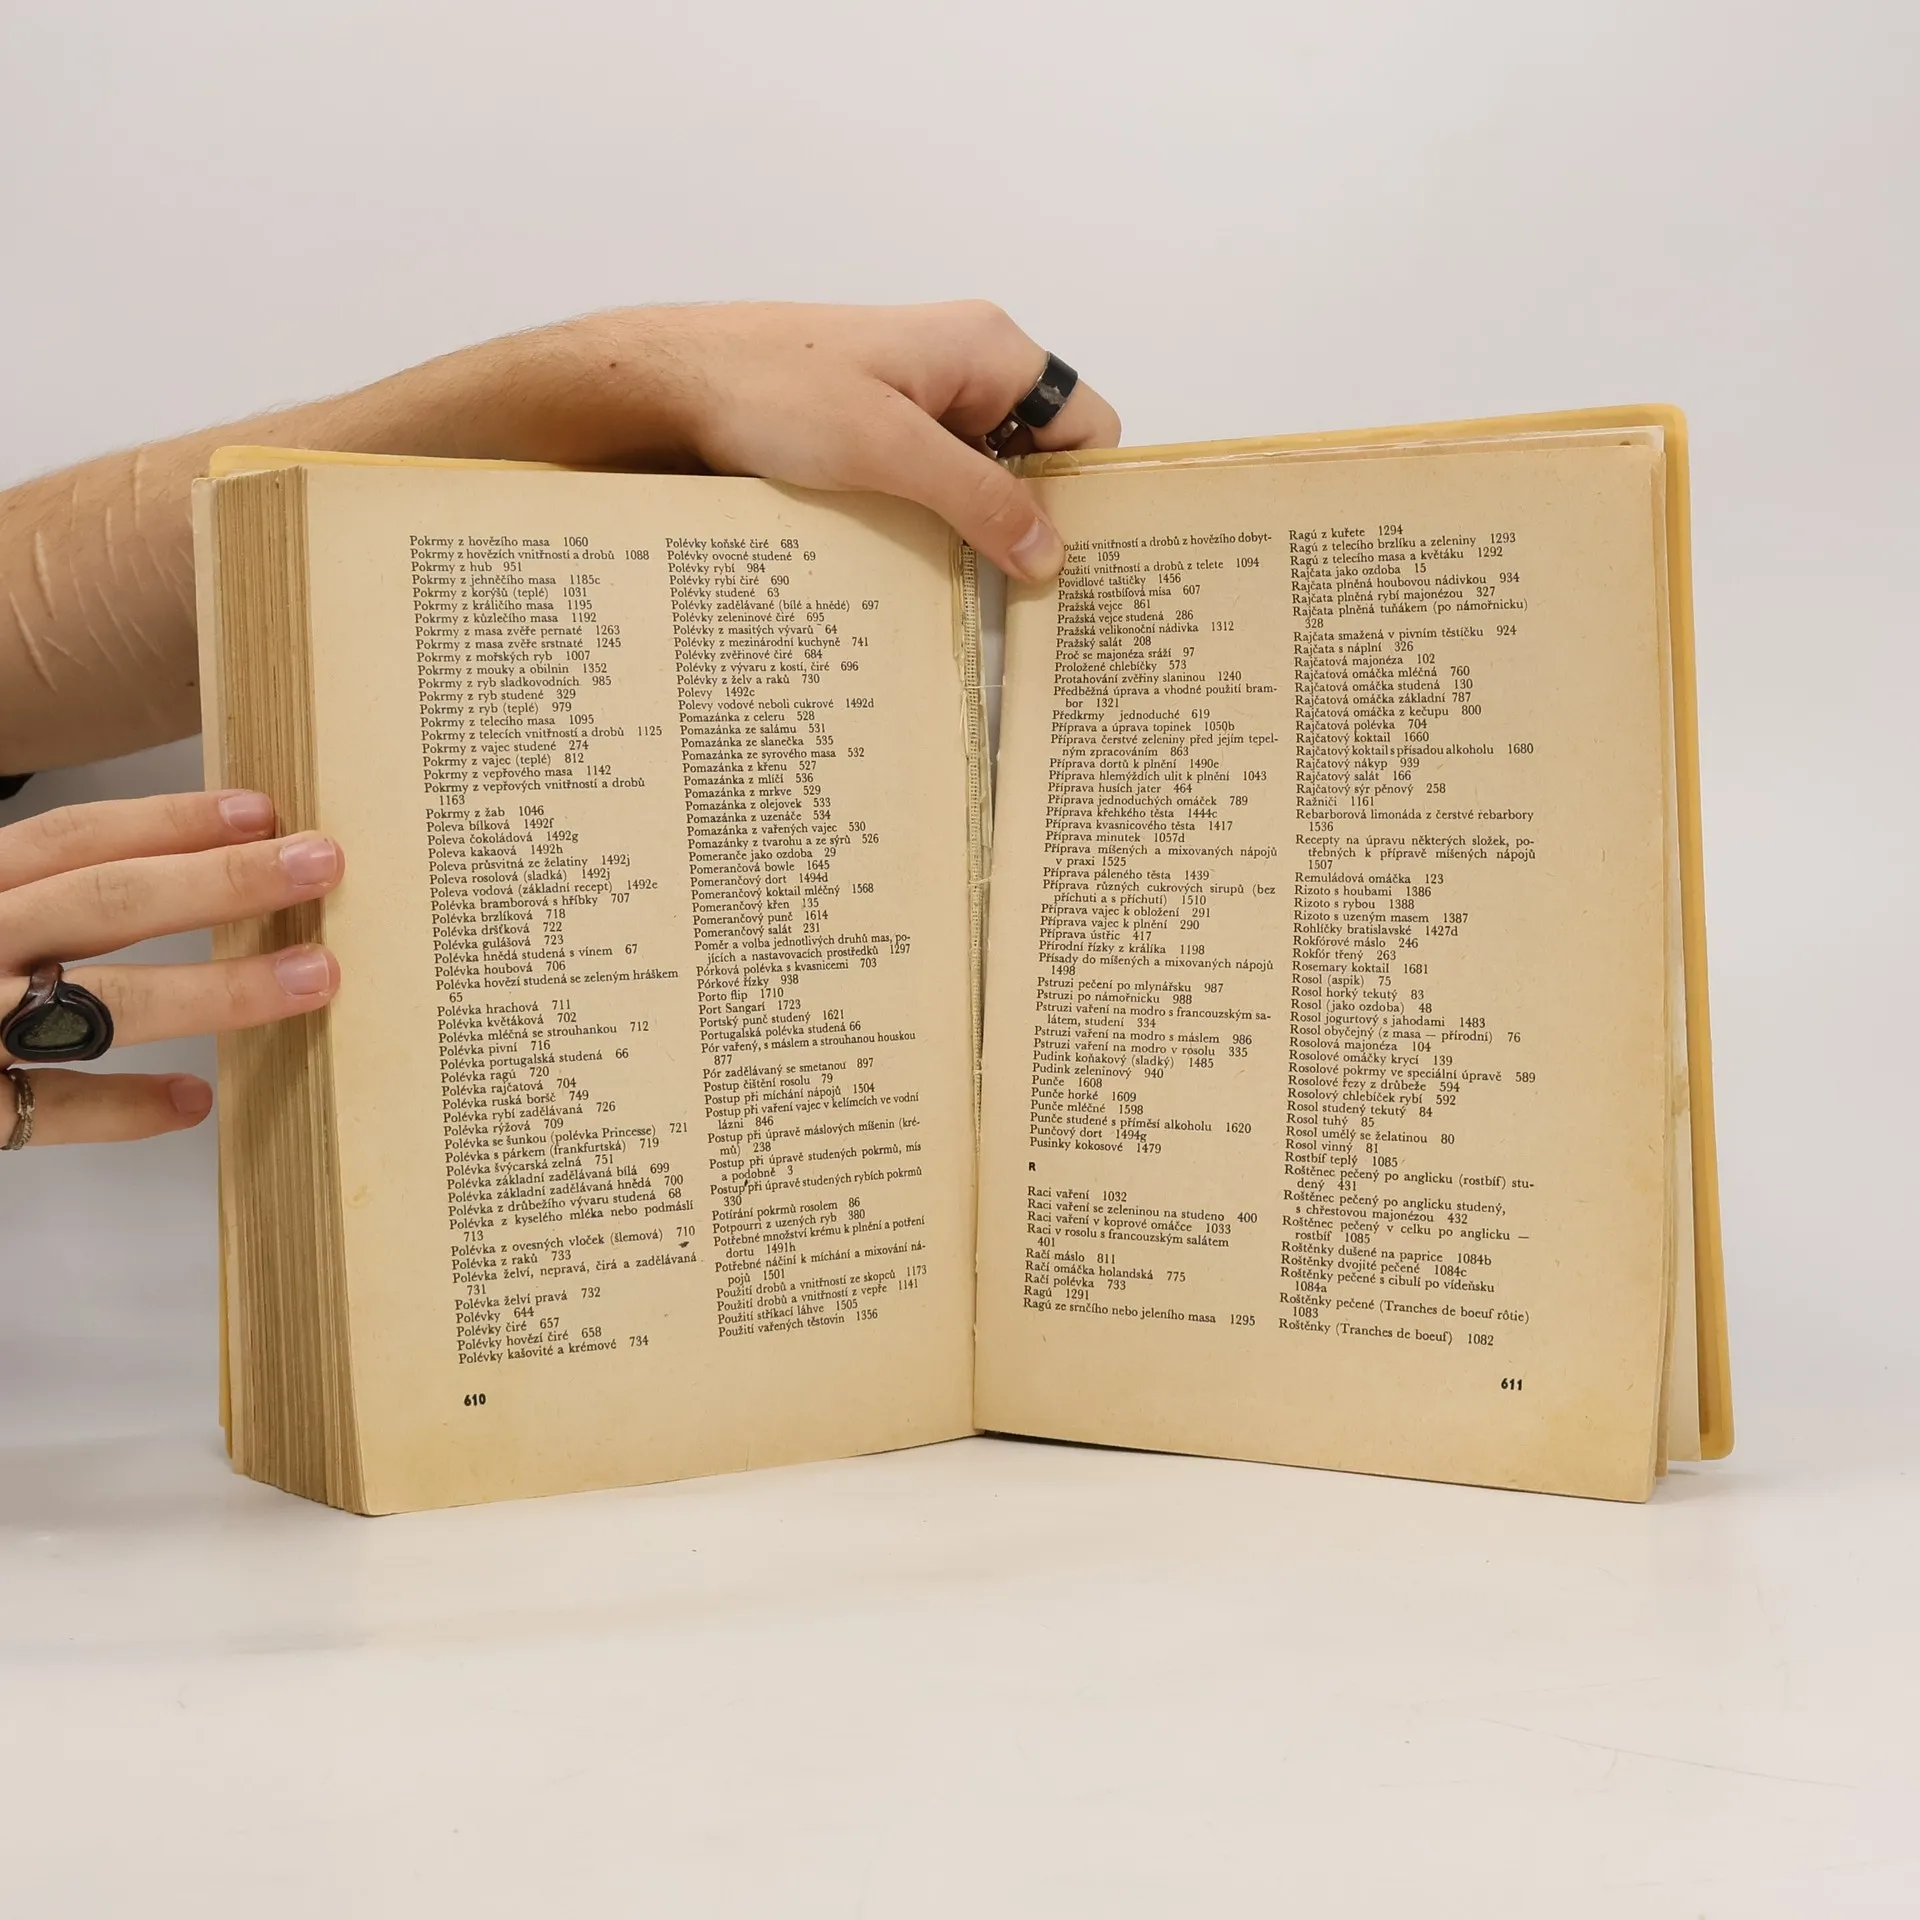 Pokrmy z hovězího masa 1060
Pokrmy z hovězích vnitřností a drobů 1088
Pokrmy z hub 951
Pokrmy z jehněčího masa 1185c
Pokrmy z korýšů (teplé) 1031
Pokrmy z králičího masa 1195
Pokrmy z kůzlečího masa 1192
Pokrmy z masa zvěře pernaté 1263
Pokrmy z masa zvěře srstnaté 1245
Pokrmy z mořských ryb 1007
Pokrmy z mouky a obilnin 1352
Pokrmy z ryb sladkovodních 985
Pokrmy z ryb studené 329
Pokrmy z ryb (teplé) 979
Pokrmy z telecího masa 1095
Pokrmy z telecích vnitřností a drobů 1125
Pokrmy z vajec studené 274
Pokrmy z vajec (teplé) 812
Pokrmy z vepřového masa 1142
Pokrmy z vepřových vnitřností a drobů
1163
Pokrmy z žab 1046
Poleva bílková 1492f
Poleva čokoládová 1492g
Poleva kakaová 1492h
Poleva průsvitná ze želatiny 1492j
Poleva rosolová (sladká) 1492j
Poleva vodová (základní recept) 1492e
Polévka bramborová s hříbky 707
Polévka brzlíková 718
Polévka dršťková 722
Polévka gulášová 723
Polévka hnědá studená s vínem 67
Polévka houbová 706
Polévka hovězí studená se zeleným hráškem
65
Polévka hrachová 711
Polévka květáková 702
Polévka mléčná se strouhankou 712
Polévka pivní 716
Polévka portugalská studená 66
Polévka ragú 720
Polévka rajčatová 704
Polévka ruská boršč 749
Polévka rybí zadělávaná 726
Polévka rýžová 709
Polévka se šunkou (polévka Princesse) 721
Polévka s párkem (frankfurtská) 719
Polévka švýcarská zelná 751
Polévka základní zadělávaná bílá 699
Polévka základní zadělávaná hnědá 700
Polévka z drůbežího vývaru studená 68
Polévka z kyselého mléka nebo podmáslí
713
Polévka z ovesných vloček (šlemová) 710
Polévka z raků 733
Polévka želví, nepravá, čirá a zadělávaná
731
Polévka želví pravá 732
Polévky 644
Polévky čiré 657
Polévky hovězí čiré 658
Polévky kašovité a krémové 734
Polévky koňské čiré 683
Polévky ovocné studené 69
Polévky rybí 984
Polévky rybí čiré 690
Polévky studené 63
Polévky zadělávané (bílé a hnědé) 697
Polévky zeleninové čiré 695
Polévky z masitých vývarů 64
Polévky z mezinárodní kuchyně 741
Polévky zvěřinové čiré 684
Polévky z vývaru z kostí, čiré 696
Polévky z želv a raků 730
Polevy 1492c
Polevy vodové neboli cukrové 1492d
Pomazánka z celeru 528
Pomazánka ze salámu 531
Pomazánka ze slanečka 535
Pomazánka ze syrového masa 532
Pomazánka z křenu 527
Pomazánka z mlíčí 536
Pomazánka z mrkve 529
Pomazánka z olejovek 533
Pomazánka z uzenáče 534
Pomazánka z vařených vajec 530
Pomazánky z tvarohu a ze sýrů 526
Pomeranče jako ozdoba 29
Pomerančová bowle 1645
Pomerančový dort 1494d
Pomerančový koktail mléčný 1568
Pomerančový křen 135
Pomerančový punč 1614
Pomerančový salát 231
Poměr a volba jednotlivých druhů mas, po-
jících a nastavovacích prostředků 1297
Pórková polévka s kvasnicemi 703
Pórkové řízky 938
Porto flip 1710
Port Sangarí 1723
Portský punč studený 1621
Portugalská polévka studená 66
Pór vařený, s máslem a strouhanou houskou
877
Pór zadělávaný se smetanou 897
Postup čištění rosolu 79
Postup při míchání nápojů 1504
Postup při vaření vajec v kelímcích ve vodní
lázni 846
Postup při úpravě máslových míšenin (kré-
mů) 238
Postup při úpravě studených pokrmů, mís
a podobně 3
Postup při úpravě studených rybích pokrmů
330
Potírání pokrmů rosolem 86
Potpourri z uzených ryb 380
Potřebné množství krému k plnění a potření
dortu 1491h
Potřebné náčiní k míchání a mixování ná-
pojů 1501
Použití drobů a vnitřností ze skopců 1173
Použití drobů a vnitřností z vepře 1141
Použití stříkací láhve 1505
Použití vařených těstovin 1356
610
oužití vnitřností a drobů z hovězího dobyt-
čete 1059
Použití vnitřností a drobů z telete 1094
Povidlové taštičky 1456
Pražská rostbífová mísa 607
Pražská vejce 861
Pražská vejce studená 286
Pražská velikonoční nádivka 1312
Pražský salát 208
Proč se majonéza sráží 97
Proložené chlebíčky 573
Protahování zvěřiny slaninou 1240
Předběžná úprava a vhodné použití bram-
bor 1321
Předkrmy jednoduché 619
Příprava a úprava topinek 1050b
Příprava čerstvé zeleniny před jejím tepel-
ným zpracováním 863
Příprava dortů k plnění 1490e
Příprava hlemýždích ulit k plnění 1043
Příprava husích jater 464
Příprava jednoduchých omáček 789
Příprava křehkého těsta 1444c
Příprava kvasnicového těsta 1417
Příprava minutek 1057d
Příprava míšených a mixovaných nápojů
v praxi 1525
Příprava páleného těsta 1439
Příprava různých cukrových sirupů (bez
příchuti a s příchutí) 1510
Příprava vajec k obložení 291
Příprava vajec k plnění 290
Příprava ústřic 417
Přírodní řízky z králíka 1198
Přísady do míšených a mixovaných nápojů
1498
Pstruzi pečení po mlynářsku 987
Pstruzi po námořnicku 988
Pstruzi vaření na modro s francouzským sa-
látem, studení 334
Pstruzi vaření na modro s máslem 986
Pstruzi vaření na modro v rosolu 335
Pudink koňakový (sladký) 1485
Pudink zeleninový 940
Punče 1608
Punče horké 1609
Punče mléčné 1598
Punče studené s příměsí alkoholu 1620
Punčový dort 1494g
Pusinky kokosové 1479
R
Raci vaření 1032
Raci vaření se zeleninou na studeno 400
Raci vaření v koprové omáčce 1033
Raci v rosolu s francouzským salátem
401
Račí máslo 811
Račí omáčka holandská 775
Račí polévka 733
Ragú 1291
Ragú ze srnčího nebo jeleního masa 1295
Ragú z kuřete 1294
Ragú z telecího brzlíku a zeleniny 1293
Ragú z telecího masa a květáku 1292
Rajčata jako ozdoba 15
Rajčata plněná houbovou nádivkou 934
Rajčata plněná rybí majonézou 327
Rajčata plněná tuňákem (po námořnicku)
328
Rajčata smažená v pivním těstíčku 924
Rajčata s náplní 326
Rajčatová majonéza 102
Rajčatová omáčka mléčná 760
Rajčatová omáčka studená 130
Rajčatová omáčka základní 787
Rajčatová omáčka z kečupu 800
Rajčatová polévka 704
Rajčatový koktail 1660
Rajčatový koktail s přísadou alkoholu 1680
Rajčatový nákyp 939
Rajčatový salát 166
Rajčatový sýr pěnový 258
Ražniči 1161
Rebarborová limonáda z čerstvé rebarbory
1536
Recepty na úpravu některých složek, po-
třebných k přípravě míšených nápojů
1507
Remuládová omáčka 123
Rizoto s houbami 1386
Rizoto s rybou 1388
Rizoto s uzeným masem 1387
Rohlíčky bratislavské 1427d
Rokfórové máslo 246
Rokfór třený 263
Rosemary koktail 1681
Rosol (aspik) 75
Rosol horký tekutý 83
Rosol (jako ozdoba) 48
Rosol jogurtový s jahodami 1483
Rosol obyčejný (z masa — přírodní) 76
Rosolová majonéza 104
Rosolové omáčky krycí 139
Rosolové pokrmy ve speciální úpravě 589
Rosolové řezy z drůbeže 594
Rosolový chlebíček rybí 592
Rosol studený tekutý 84
Rosol tuhý 85
Rosol umělý se želatinou 80
Rosol vinný 81
Rostbíf teplý 1085
Roštěnec pečený po anglicku (rostbíf) stu-
dený 431
Roštěnec pečený po anglicku studený,
s chřestovou majonézou 432
Roštěnec pečený v celku po anglicku —
rostbíf 1085
Roštěnky dušené na paprice 1084b
Roštěnky dvojité pečené 1084c
Roštěnky pečené s cibulí po vídeňsku
1084a
Roštěnky pečené (Tranches de boeuf rôtie)
1083
Roštěnky (Tranches de boeuf) 1082
611